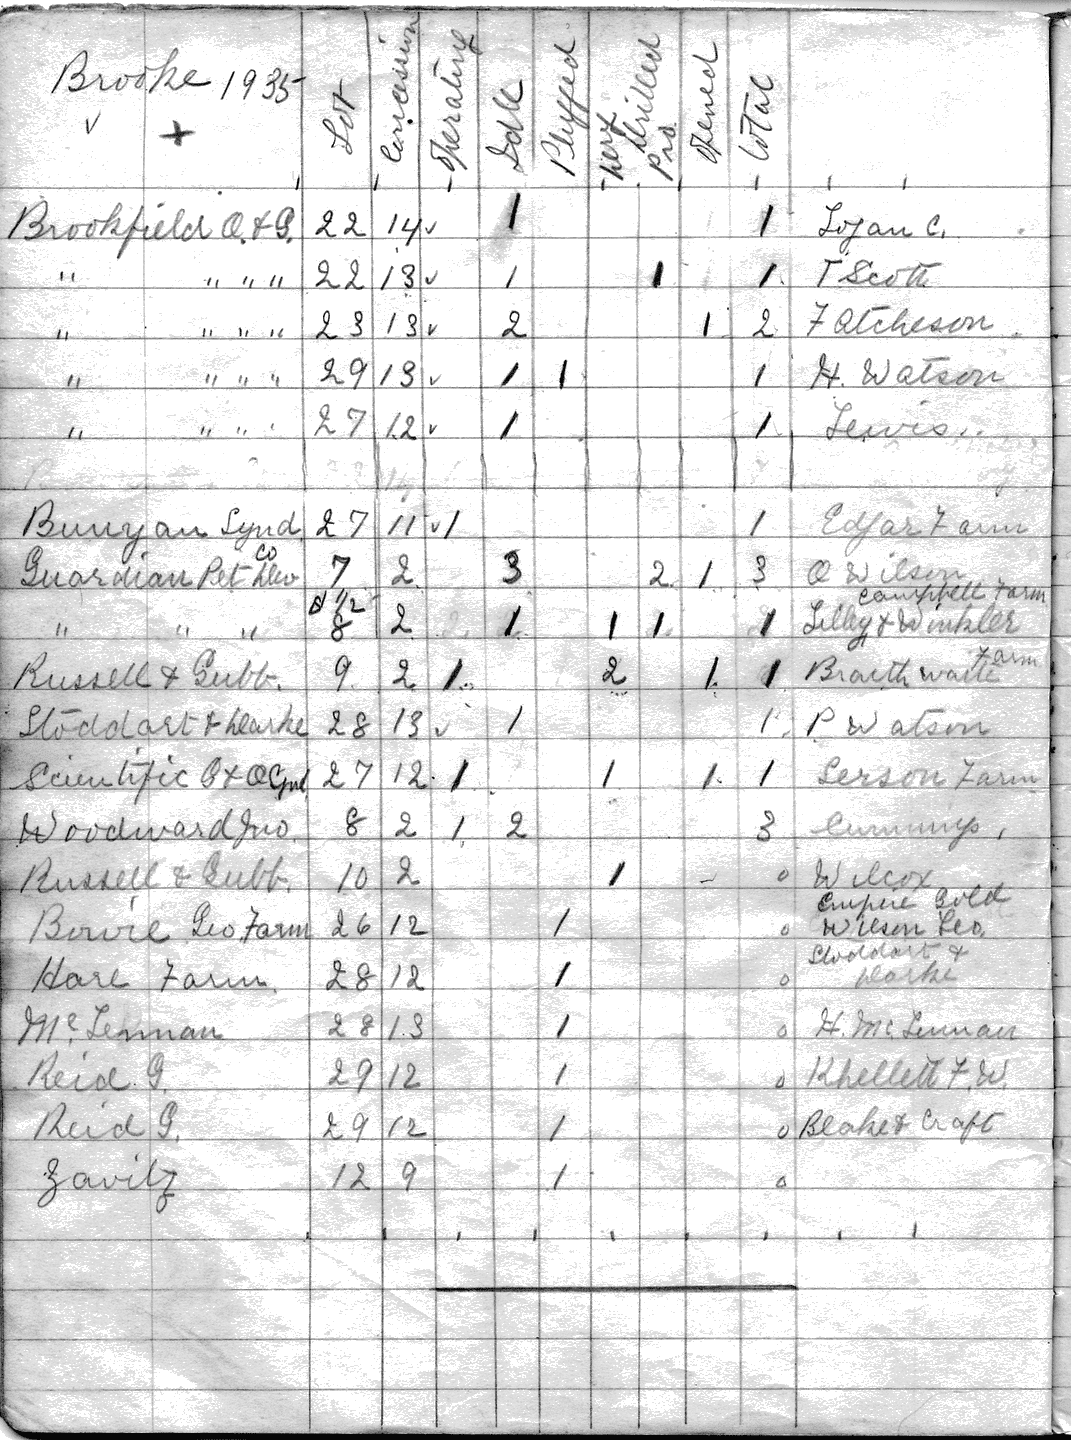 Brooke 1935 Lot Concession Operating Idle Plugged Dry Drilled Pro. Opened Total
v +
Brookfield O. & G. 22 14 v 1 1 Logan C.
" " " " 22 13 v 1 1 1 T Scott
" " " " 23 13 v 2 1 2 F Atcheson
" " " " 29 13 v 1 1 1 H. Watson
" " " " 27 12 v 1 1 Lewis
Bunyan Synd. 27 11 v 1 1 Edgar Farm
Guardian Pet Co Dev 7 2 3 2 1 3 O Wilson
Campbell Farm
" " " 8 2 1 1 1 1 Lilley & Winkler
Russell & Gubb. 9 2 1 2 1 1 Braithwaite Farm
Stoddart & Clarke 28 13 v 1 1 P Watson
Scientific 27 12 1 1 1 1 Serson Farm
Woodward Jno. 8 2 1 2 3 Cummings,
Russell & Gubb. 10 2 1 - 0 Wilcox
Empire Gold
Bowie Geo. Farm 26 12 1 0 Wilson Geo.
Stoddart &
Hare Farm. 28 12 1 0 Clarke
Mc Lennan 28 13 1 0 H. Mc Lennan
Reid G. 29 12 1 0 Khellett F. W.
Reid G. 29 12 1 0 Blake & Craft
Zavitz 12 9 1 0